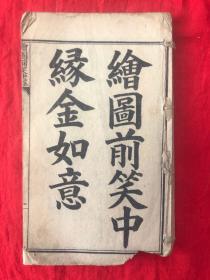 繪圖前笑中
緣金如意